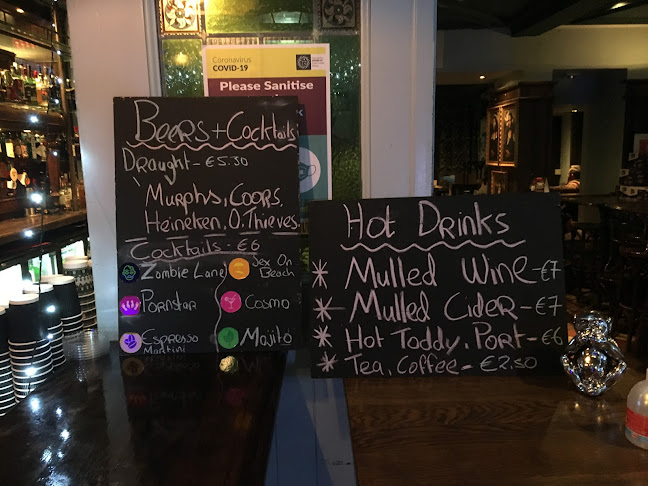 Coronavirus
COVID-19
Please Sanitise
BEERS + COCKTAILS
DRAUGHT - €5.30
MURPHS, COORS,
HEINEKEN, O. THIEVES
COCKTAILS - €6
ZOMBIE LANE
SEX ON
BEACH
PORNSTAR
COSMO
ESPRESSO
MARTINI
MOJITO
HOT DRINKS
* MULLED WINE - €7
* MULLED CIDER - €7
* HOT TODDY, PORT - €6
* TEA, COFFEE - €2.50